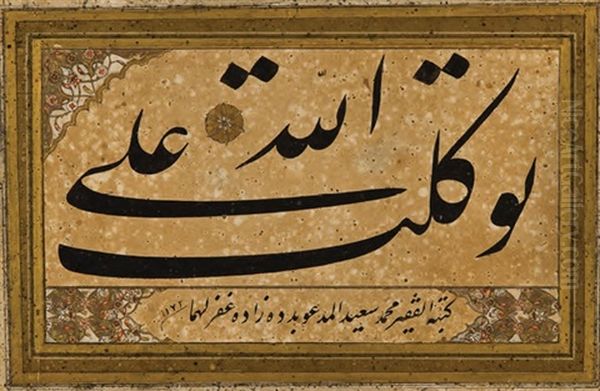 توكلت على الله
كتبه الفقير محمد سعيد المدعو بدده زاده غفر لهما ١١٧٢